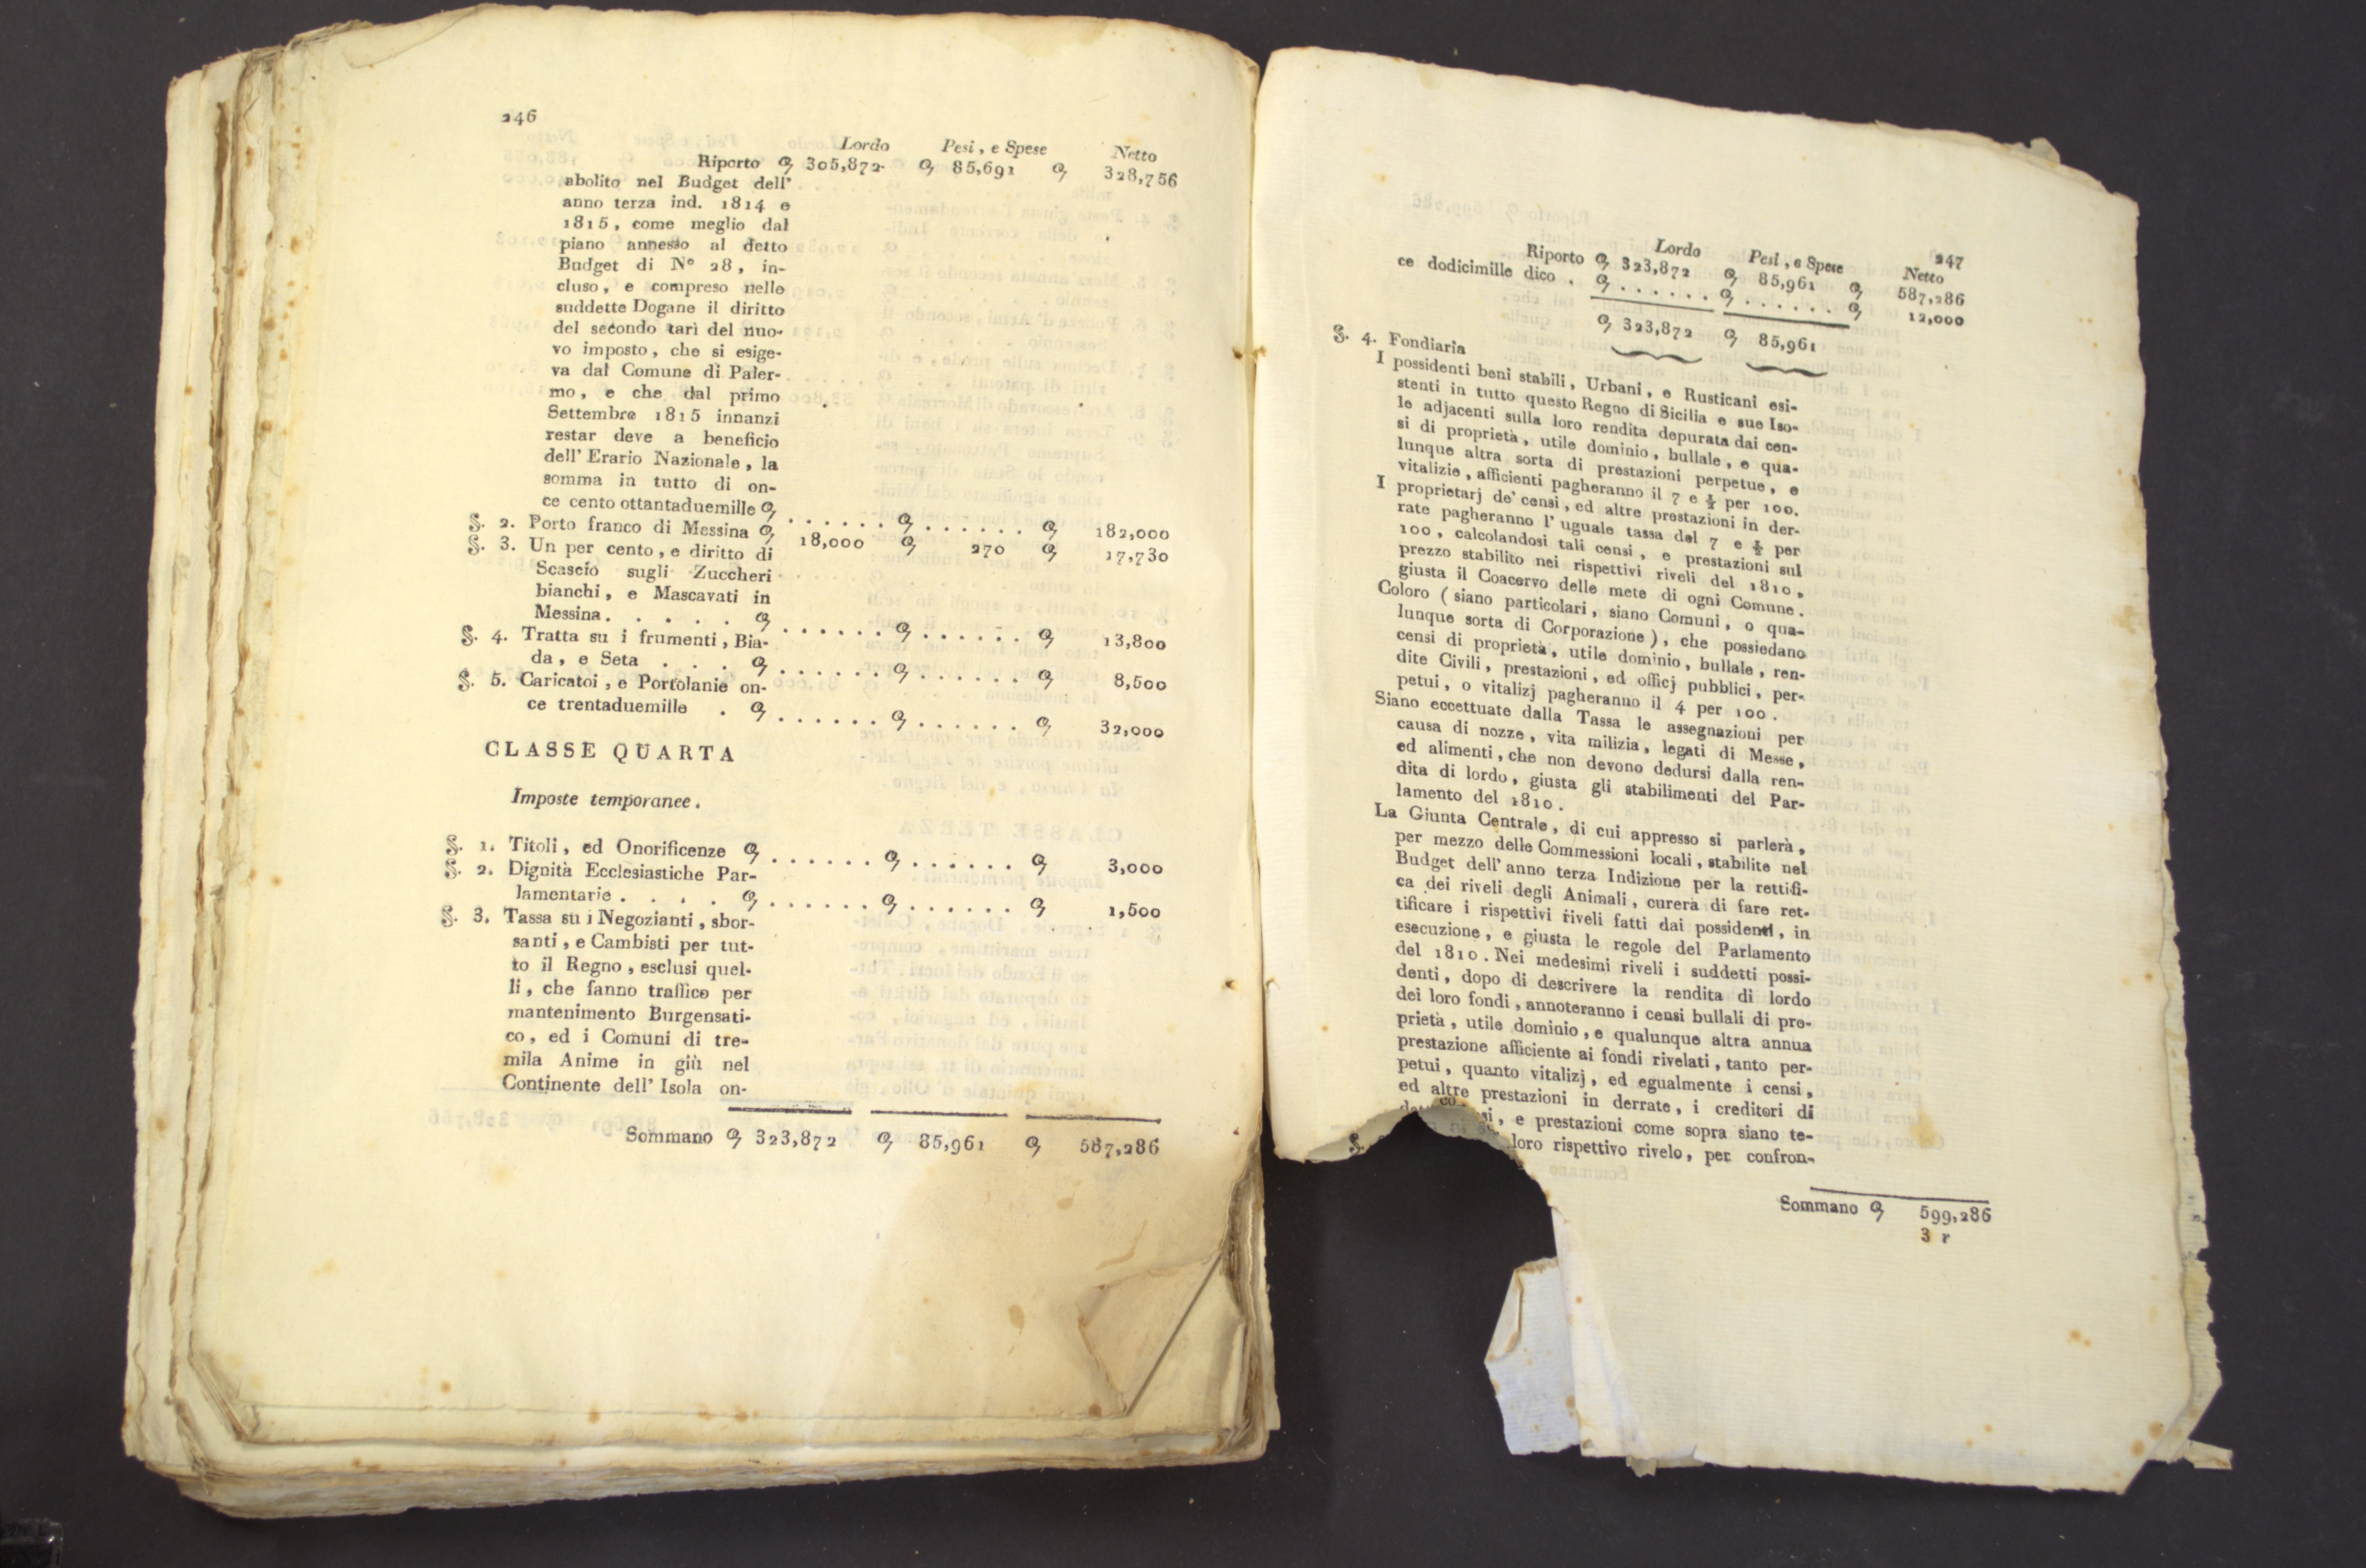 246
Lordo Pesi, e Spese Netto
Riporto ɋ 305,872 ɋ 85,691 ɋ 328,756
abolito nel Budget dell'
anno terza ind. 1814 e
1815, come meglio dal
piano annesso al detto
Budget di N° 28, in-
cluso, e compreso nelle
suddette Dogane il diritto
del secondo tarì del nuo-
vo imposto, che si esige-
va dal Comune di Paler-
mo, e che dal primo
Settembre 1815 innanzi
restar deve a beneficio
dell' Erario Nazionale, la
somma in tutto di on-
ce cento ottantaduemille ɋ . . . . . . ɋ . . . . . . ɋ 182,000
§. 2. Porto franco di Messina ɋ 18,000 ɋ 270 ɋ 17,730
§. 3. Un per cento, e diritto di
Scascio sugli Zuccheri
bianchi, e Mascavati in
Messina. . . . . . ɋ . . . . . . ɋ . . . . . . ɋ 13,800
§. 4. Tratta su i frumenti, Bia-
da, e Seta . . . ɋ . . . . . . ɋ . . . . . . ɋ 8,500
§. 5. Caricatoi, e Portolanie on-
ce trentaduemille . ɋ . . . . . . ɋ . . . . . . ɋ 32,000
CLASSE QUARTA
Imposte temporanee.
§. 1. Titoli, ed Onorificenze ɋ . . . . . . ɋ . . . . . . ɋ 3,000
§. 2. Dignità Ecclesiastiche Par-
lamentarie . . . . ɋ . . . . . . ɋ . . . . . . ɋ 1,500
§. 3. Tassa su i Negozianti, sbor-
santi, e Cambisti per tut-
to il Regno, esclusi quel-
li, che fanno traffico per
mantenimento Burgensati-
co, ed i Comuni di tre-
mila Anime in giù nel
Continente dell' Isola on-
Sommano ɋ 323,872 ɋ 85,961 ɋ 587,286
247
Lordo Pesi, e Spese Netto
Riporto ɋ 323,872 ɋ 85,961 ɋ 587,286
ce dodicimille dico . ɋ . . . . . . ɋ . . . . . . ɋ 12,000
ɋ 323,872 ɋ 85,961
§. 4. Fondiaria
I possidenti beni stabili, Urbani, e Rusticani esi-
stenti in tutto questo Regno di Sicilia e sue Iso-
le adjacenti sulla loro rendita depurata dai cen-
si di proprietà, utile dominio, bullale, e qua-
lunque altra sorta di prestazioni perpetue, e
vitalizie, afficienti pagheranno il 7 e ½ per 100.
I proprietarj de' censi, ed altre prestazioni in der-
rate pagheranno l' uguale tassa del 7 e ½ per
100, calcolandosi tali censi, e prestazioni sul
prezzo stabilito nei rispettivi riveli del 1810,
giusta il Coacervo delle mete di ogni Comune.
Coloro (siano particolari, siano Comuni, o qua-
lunque sorta di Corporazione), che possiedano
censi di proprietà, utile dominio, bullale, ren-
dite Civili, prestazioni, ed officj pubblici, per-
petui, o vitalizj pagheranno il 4 per 100.
Siano eccettuate dalla Tassa le assegnazioni per
causa di nozze, vita milizia, legati di Messe,
ed alimenti, che non devono dedursi dalla ren-
dita di lordo, giusta gli stabilimenti del Par-
lamento del 1810.
La Giunta Centrale, di cui appresso si parlerà,
per mezzo delle Commessioni locali, stabilite nel
Budget dell' anno terza Indizione per la rettifi-
ca dei riveli degli Animali, curerà di fare ret-
tificare i rispettivi riveli fatti dai possidenti, in
esecuzione, e giusta le regole del Parlamento
del 1810. Nei medesimi riveli i suddetti possi-
denti, dopo di descrivere la rendita di lordo
dei loro fondi, annoteranno i censi bullali di pro-
prietà, utile dominio, e qualunque altra annua
prestazione afficiente ai fondi rivelati, tanto per-
petui, quanto vitalizj, ed egualmente i censi,
ed altre prestazioni in derrate, i creditori di
si, e prestazioni come sopra siano te-
loro rispettivo rivelo, per confron-
§.
Sommano ɋ 599,286
3 r